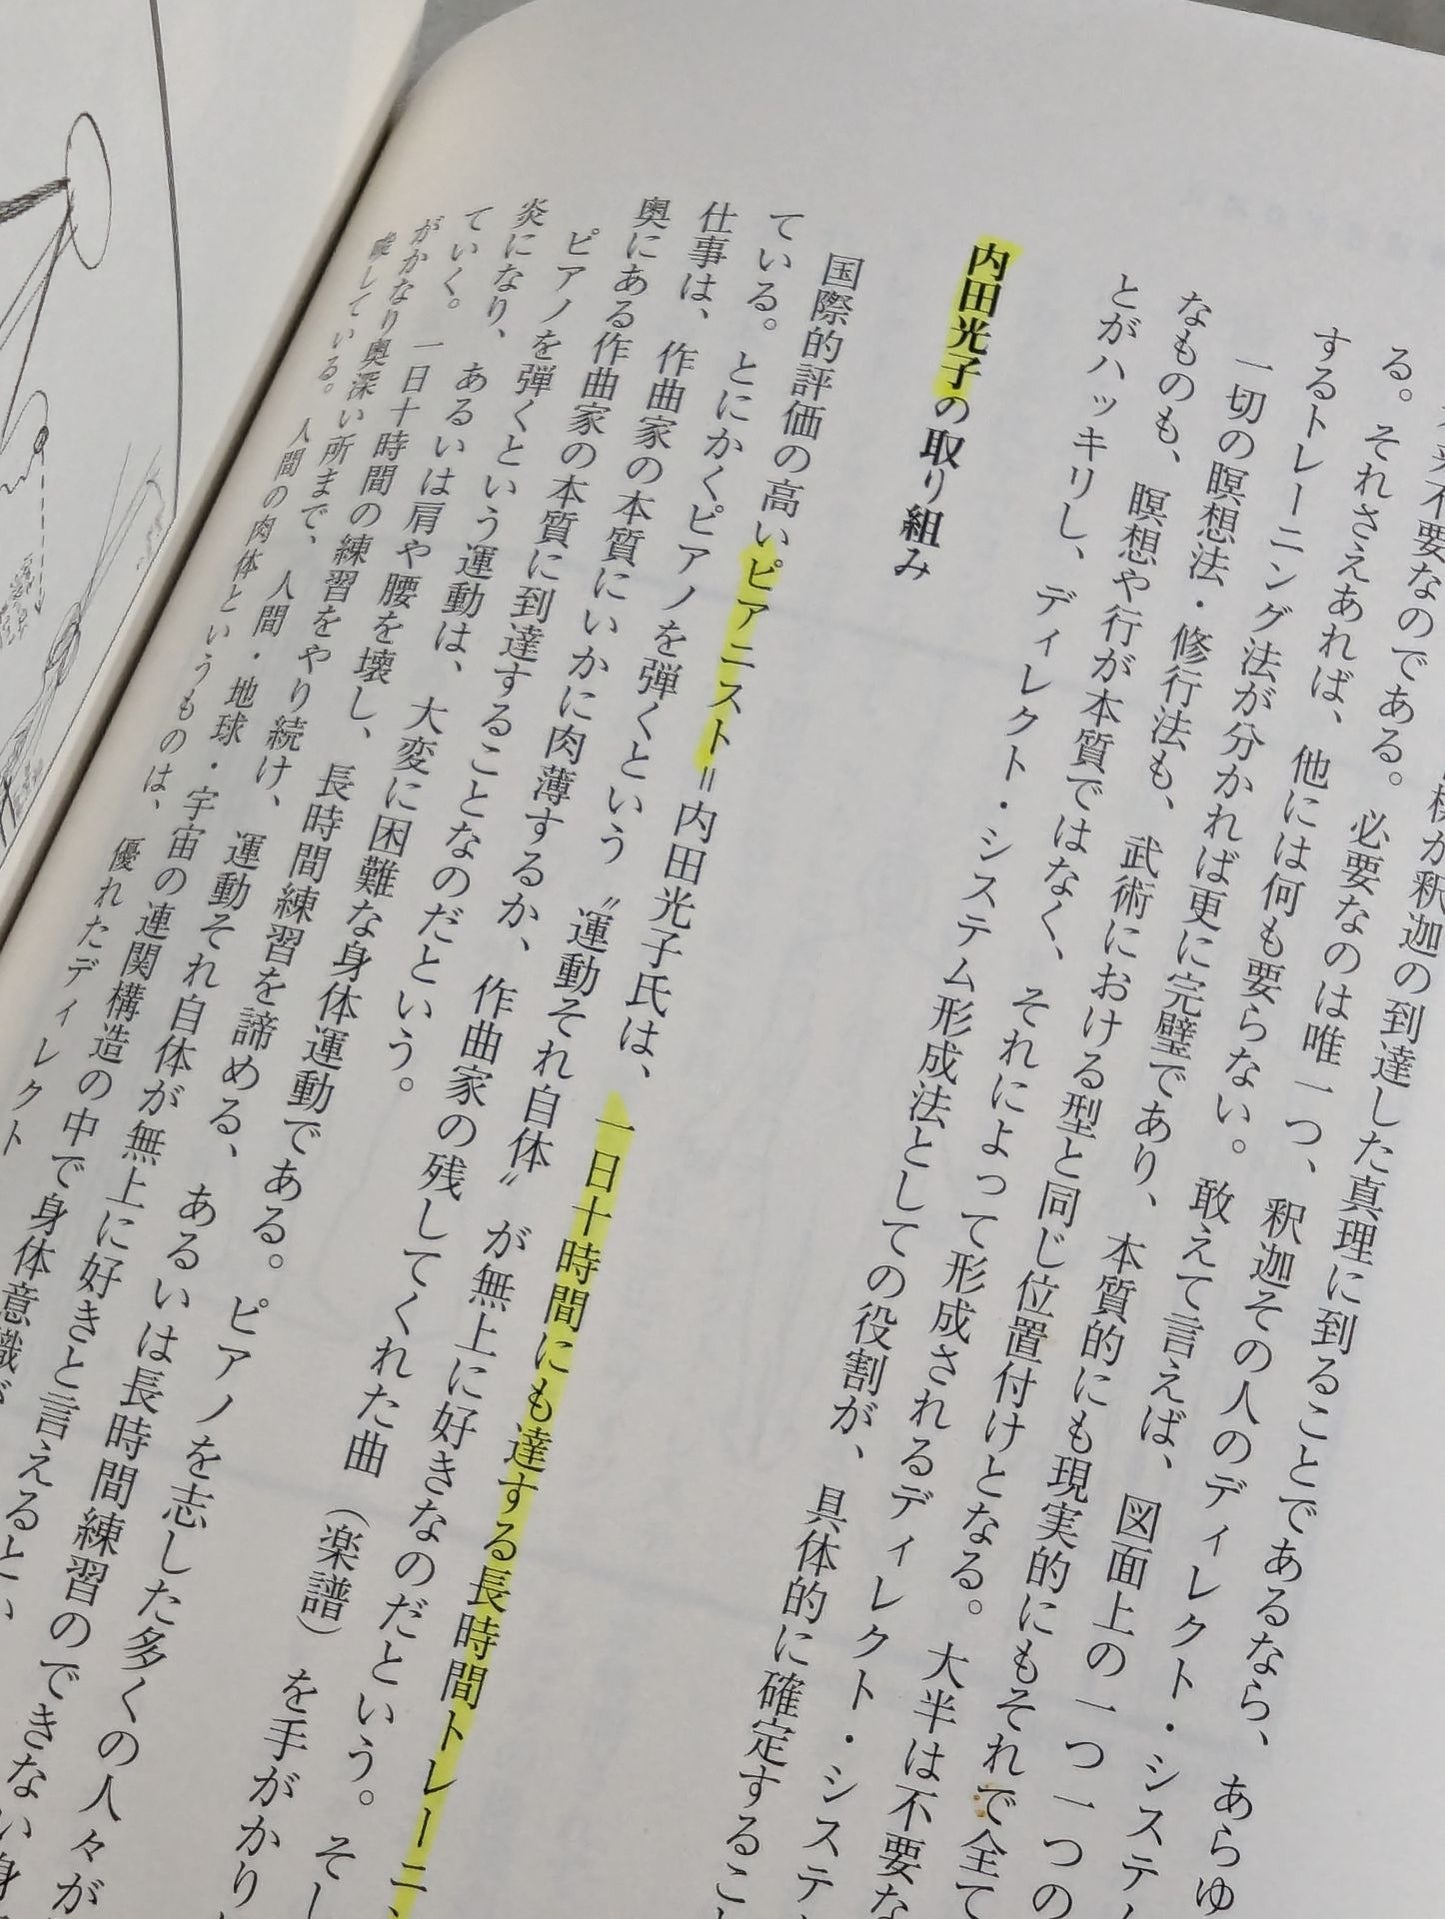 夫不要なのである。
様が釈迦の到達した真理に到ることであるなら、あらゆ
る。それさえあれば、他には何も要らない。敢えて言えば、図面上の一つ一つの
するトレーニング法が分かれば更に完璧であり、本質的にも現実的にもそれで全て
一切の瞑想法・修行法も、武術における型と同じ位置付けとなる。大半は不要な
なものも、瞑想や行が本質ではなく、それによって形成されるディレクト・システ
とがハッキリし、ディレクト・システム形成法としての役割が、具体的に確定するこ
内田光子の取り組み
国際的評価の高いピアニスト＝内田光子氏は、一日十時間にも達する長時間トレーニ
ている。とにかくピアノを弾くという〝運動それ自体〟が無上に好きなのだという。そし
仕事は、作曲家の本質にいかに肉薄するか、作曲家の残してくれた曲（楽譜）を手がかり
奥にある作曲家の本質に到達することなのだという。
ピアノを弾くという運動は、大変に困難な身体運動である。ピアノを志した多くの人々が
炎になり、あるいは肩や腰を壊し、長時間練習を諦める、あるいは長時間練習のできない身
ていく。一日十時間の練習をやり続け、運動それ自体が無上に好きと言えるとい
がかなり奥深い所まで、人間・地球・宇宙の連関構造の中で身体意識が
している。人間の肉体というものは、優れたディレクト